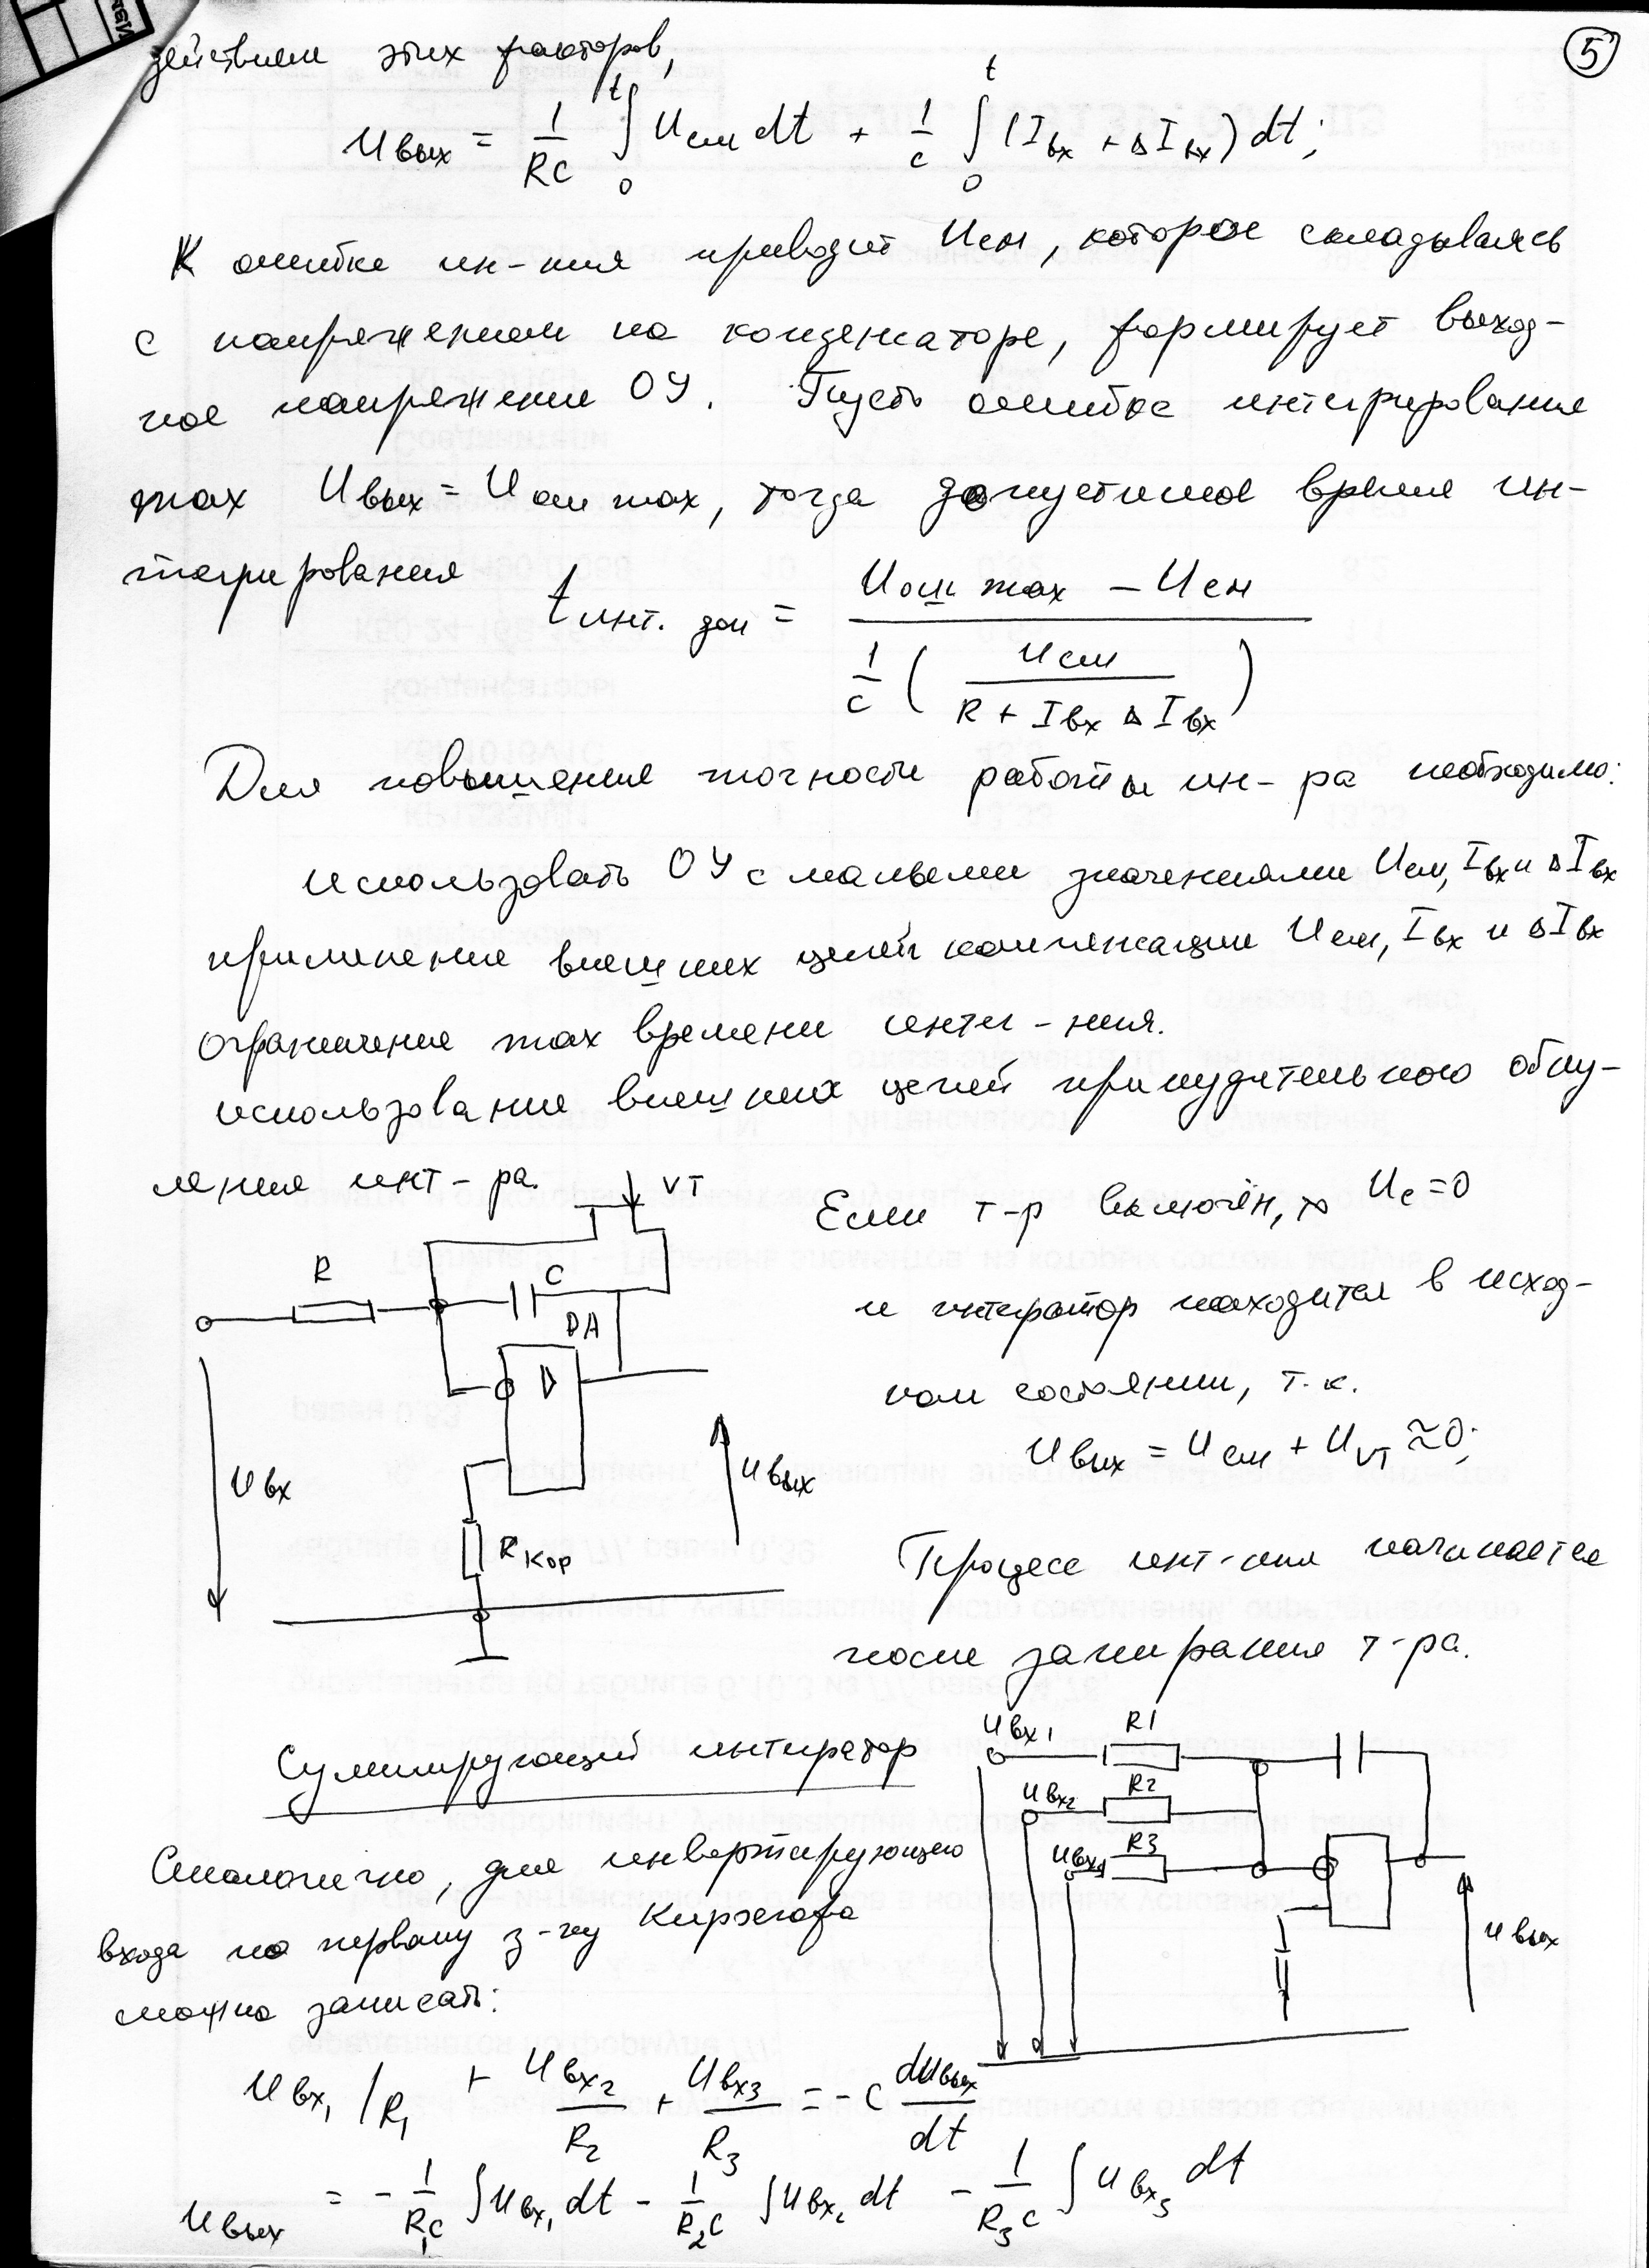 действием этих факторов, 5
Uвых = 1/RC ∫₀ᵗ Uсм dt + 1/C ∫₀ᵗ (Iвх + ΔIвх) dt;
К ошибке ин-ния приводит Uсм, которое складываясь
с напряжением на конденсаторе, формирует выход-
ное напряжение ОУ. Пусть ошибка интегрирования
max Uвых = Uош max, тогда допустимое время ин-
тегрирования
tинт. доп = (Uош max − Uсм) / (1/C (Uсм / (R + Iвх ΔIвх)))
Для повышения точности работы ин-ра необходимо:
использовать ОУ с малыми значениями Uсм, Iвх и ΔIвх
применение внешних цепей компенсации Uсм, Iвх и ΔIвх
ограничение max времени инте-ния.
использование внешних цепей принудительного обну-
ления инт-ра.
VT
R
C
DA
Uвх
Uвых
Rкор
Если т-р включён, то Uc = 0
и интегратор находится в исход-
ном состоянии, т.к.
Uвых = Uсм + UVT ≈ 0;
Процесс инт-ния начинается
после запирания т-ра.
Суммирующий интегратор
Uвх1 R1
Uвх2 R2
R3
Uвых
Аналогично, для инвертирующего
входа по первому з-ну Кирхгофа
можно записать:
Uвх1 / R1 + Uвх2 / R2 + Uвх3 / R3 = −C dUвых / dt
Uвых = − 1/R1C ∫ Uвх1 dt − 1/R2C ∫ Uвх2 dt − 1/R3C ∫ Uвх3 dt